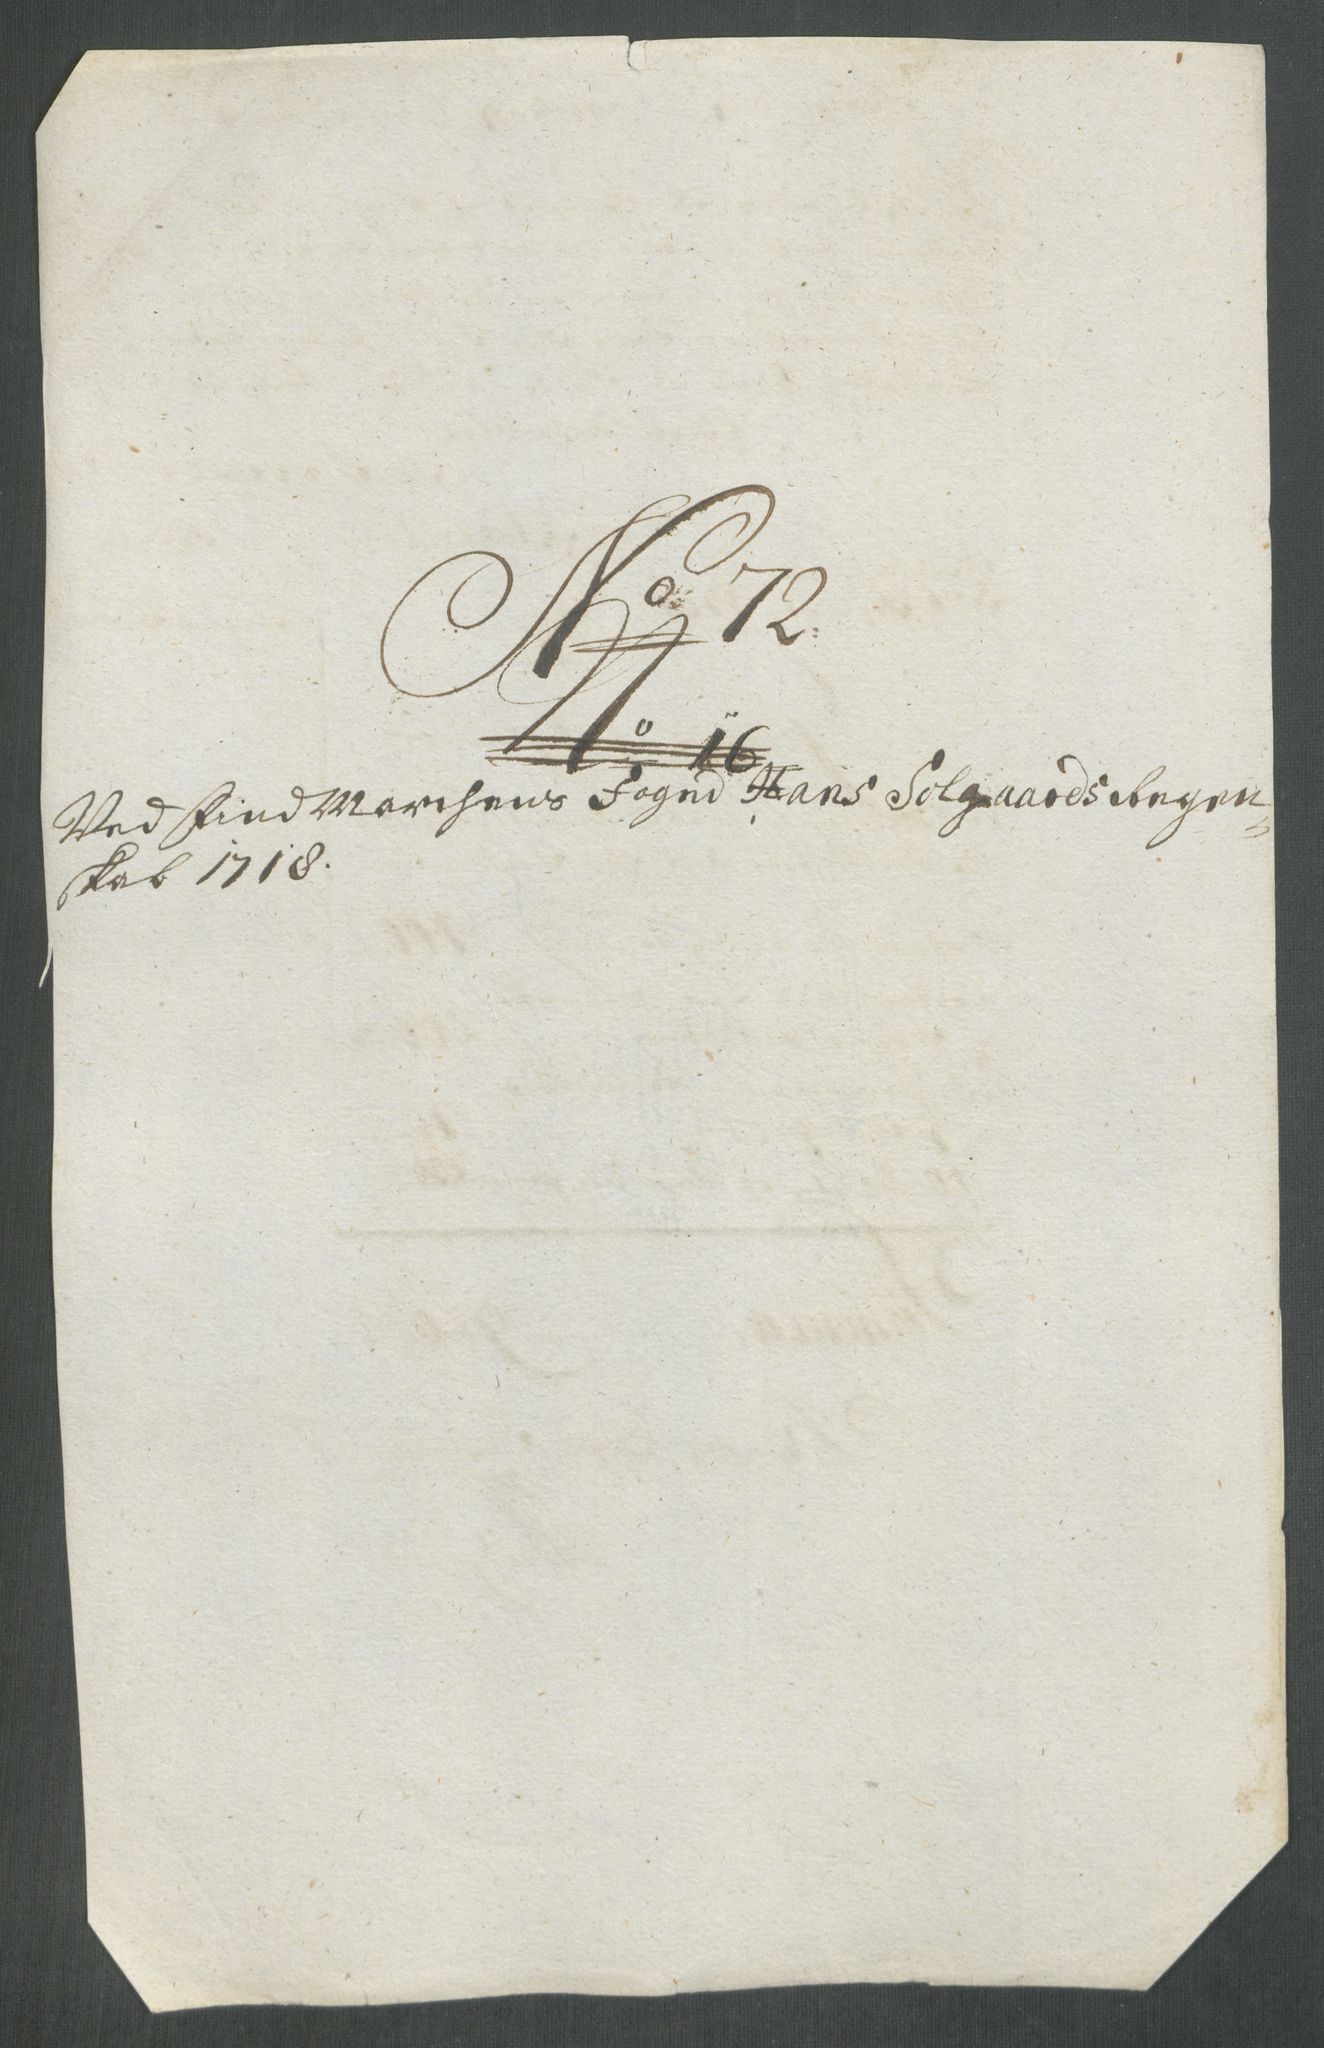 No 72.
No 16
Ved Find Marchens Foged Hans Solgaards Regen-
skab 1718.